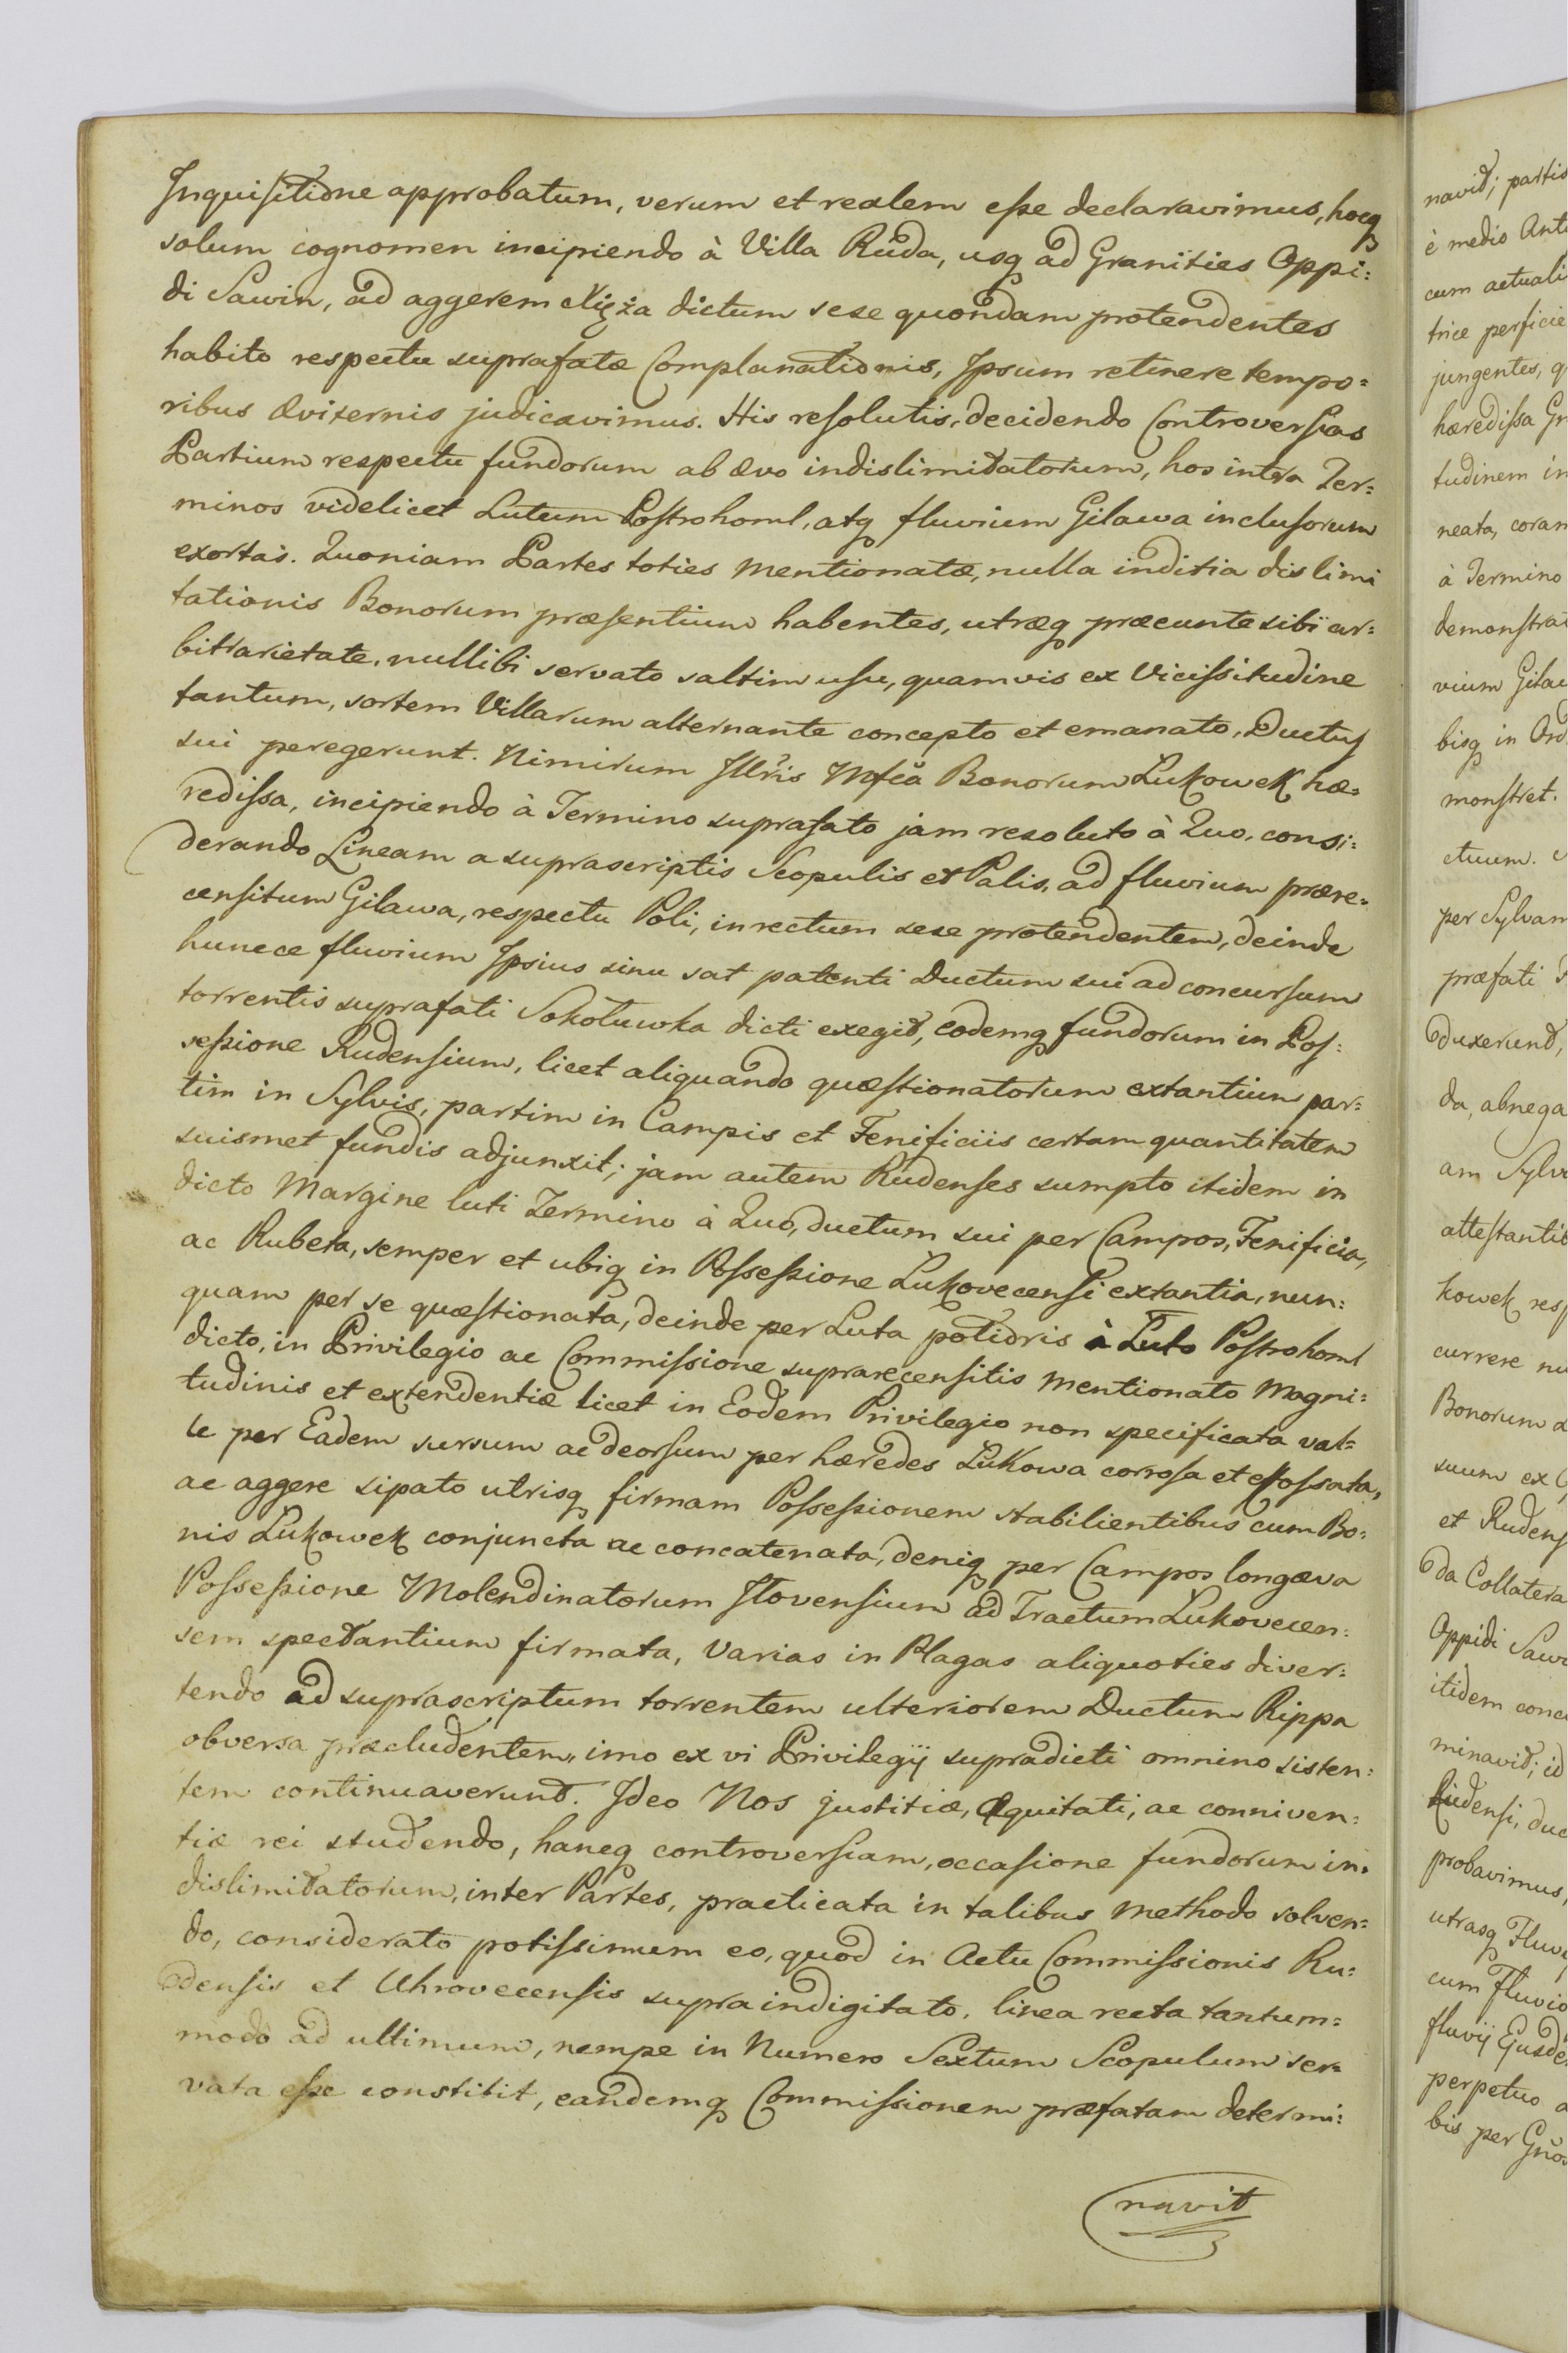 Inquisitione approbatum, verum et realem esse declaravimus, hocq
solum cognomen incipiendo à Villa Ruda, usq ad Granities Oppi:
di Sawin, ad aggerem Niża dictum sese quondam protendentes
habito respectu suprafatæ Complanationis, Ipsum retinere tempo=
ribus æviternis judicavimus. His resolutis, decidendo Controversias
Partium respectu fundorum ab ævo indislimitatorum, hos intra Ter=
minos videlicet Lutum Postrohoml, atq fluvium Gilawa inclusorum
exortas. Quoniam Partes toties mentionatæ, nulla inditia dislimi
tationis Bonorum præsentium habentes, utræq præeunte sibi ar=
bitrarietate, nullibi servato saltim usu, quamvis ex Vicissitudine
tantum, sortem Villarum alternante concepto et emanato, Ductus
sui peregerunt. Nimirum Illris Mfca Bonorum Lukowek hæ=
redissa, incipiendo à Termino suprafato jam resoluto à Quo, consi:
derando Lineam a suprascriptis Scopulis et Palis, ad fluvium prære=
censitum Gilawa, respectu Poli, in rectum sese protendentem, deinde
huncce fluvium Ipsius sinu sat patenti Ductum sui ad concursum
torrentis suprafati Sokotuwka dicti exegit, eodemq fundorum in Pos:
sessione Rudensium, licet aliquando quæstionatorum extantium par=
tim in Sylvis, partim in Campis et Fenificiis certam quantitatem
suismet fundis adjunxit; jam autem Rudenses sumpto itidem in
dicto Margine luti Termino à Quo, ductum sui per Campos, Fenificia,
ac Rubeta, semper et ubiq in Possessione Lukovecensi extantia, nun:
quam per se quæstionata, deinde per Luta potioris à Luto Postrohoml
dicto, in Privilegio ac Commissione suprarecensitis mentionato Magni=
tudinis et extendentiæ licet in Eodem Privilegio non specificata val=
le per Eadem sursum ac deorsum per hæredes Lukowa corrosa et effossata,
ac aggere sipato utrisq firmam Possessionem stabilientibus cum Bo:
nis Lukowek conjuncta ac concatenata, deniq per Campos longæva
Possessione Molendinatorum Stovensium ad Tractum Lukovecen:
sem spectantium firmata, Varias in Plagas aliquoties diver:
tendo ad suprascriptum torrentem ulteriorem Ductum Rippa
obversa præcludentem, imo ex vi Privilegij supradicti omnino sisten:
tem continuaverunt. Ideo Nos justitiæ, Æquitati, ac conniven:
tiæ rei studendo, hancq controversiam, occasione fundorum in=
dislimitatorum, inter Partes, practicata in talibus Methodo solven=
do, considerato potissimum eo, quod in Actu Commissionis Ru:
densis et Uhrovecensis supra indigitato, linea recta tantum=
modo ad ultimum, nempe in Numero Sextum Scopulum ser=
vata esse constitit, eandemq Commissionem præfatam determi:
navit
navit; partis
è medio Ant
cum actuali
trice perficie
jungentes, q
hæredissa Gr
tudinem in
neata, coram
à Termino
demonstrat
vium Gilaw
bisq in Ord
monstret.
ctuum.
per Sylvam
præfati
duxerunt,
da, abnega
am Sylv
attestantib
kowek resp
currere nu
Bonorum
suum ex
et Rudens
da Collatera
Oppidi Sawi
itidem conc
minavit; id
Rudensi, duc
probavimus,
utrasq Fluv
cum Fluvio
fluvij Ejusde
perpetuo a
bis per Gnos